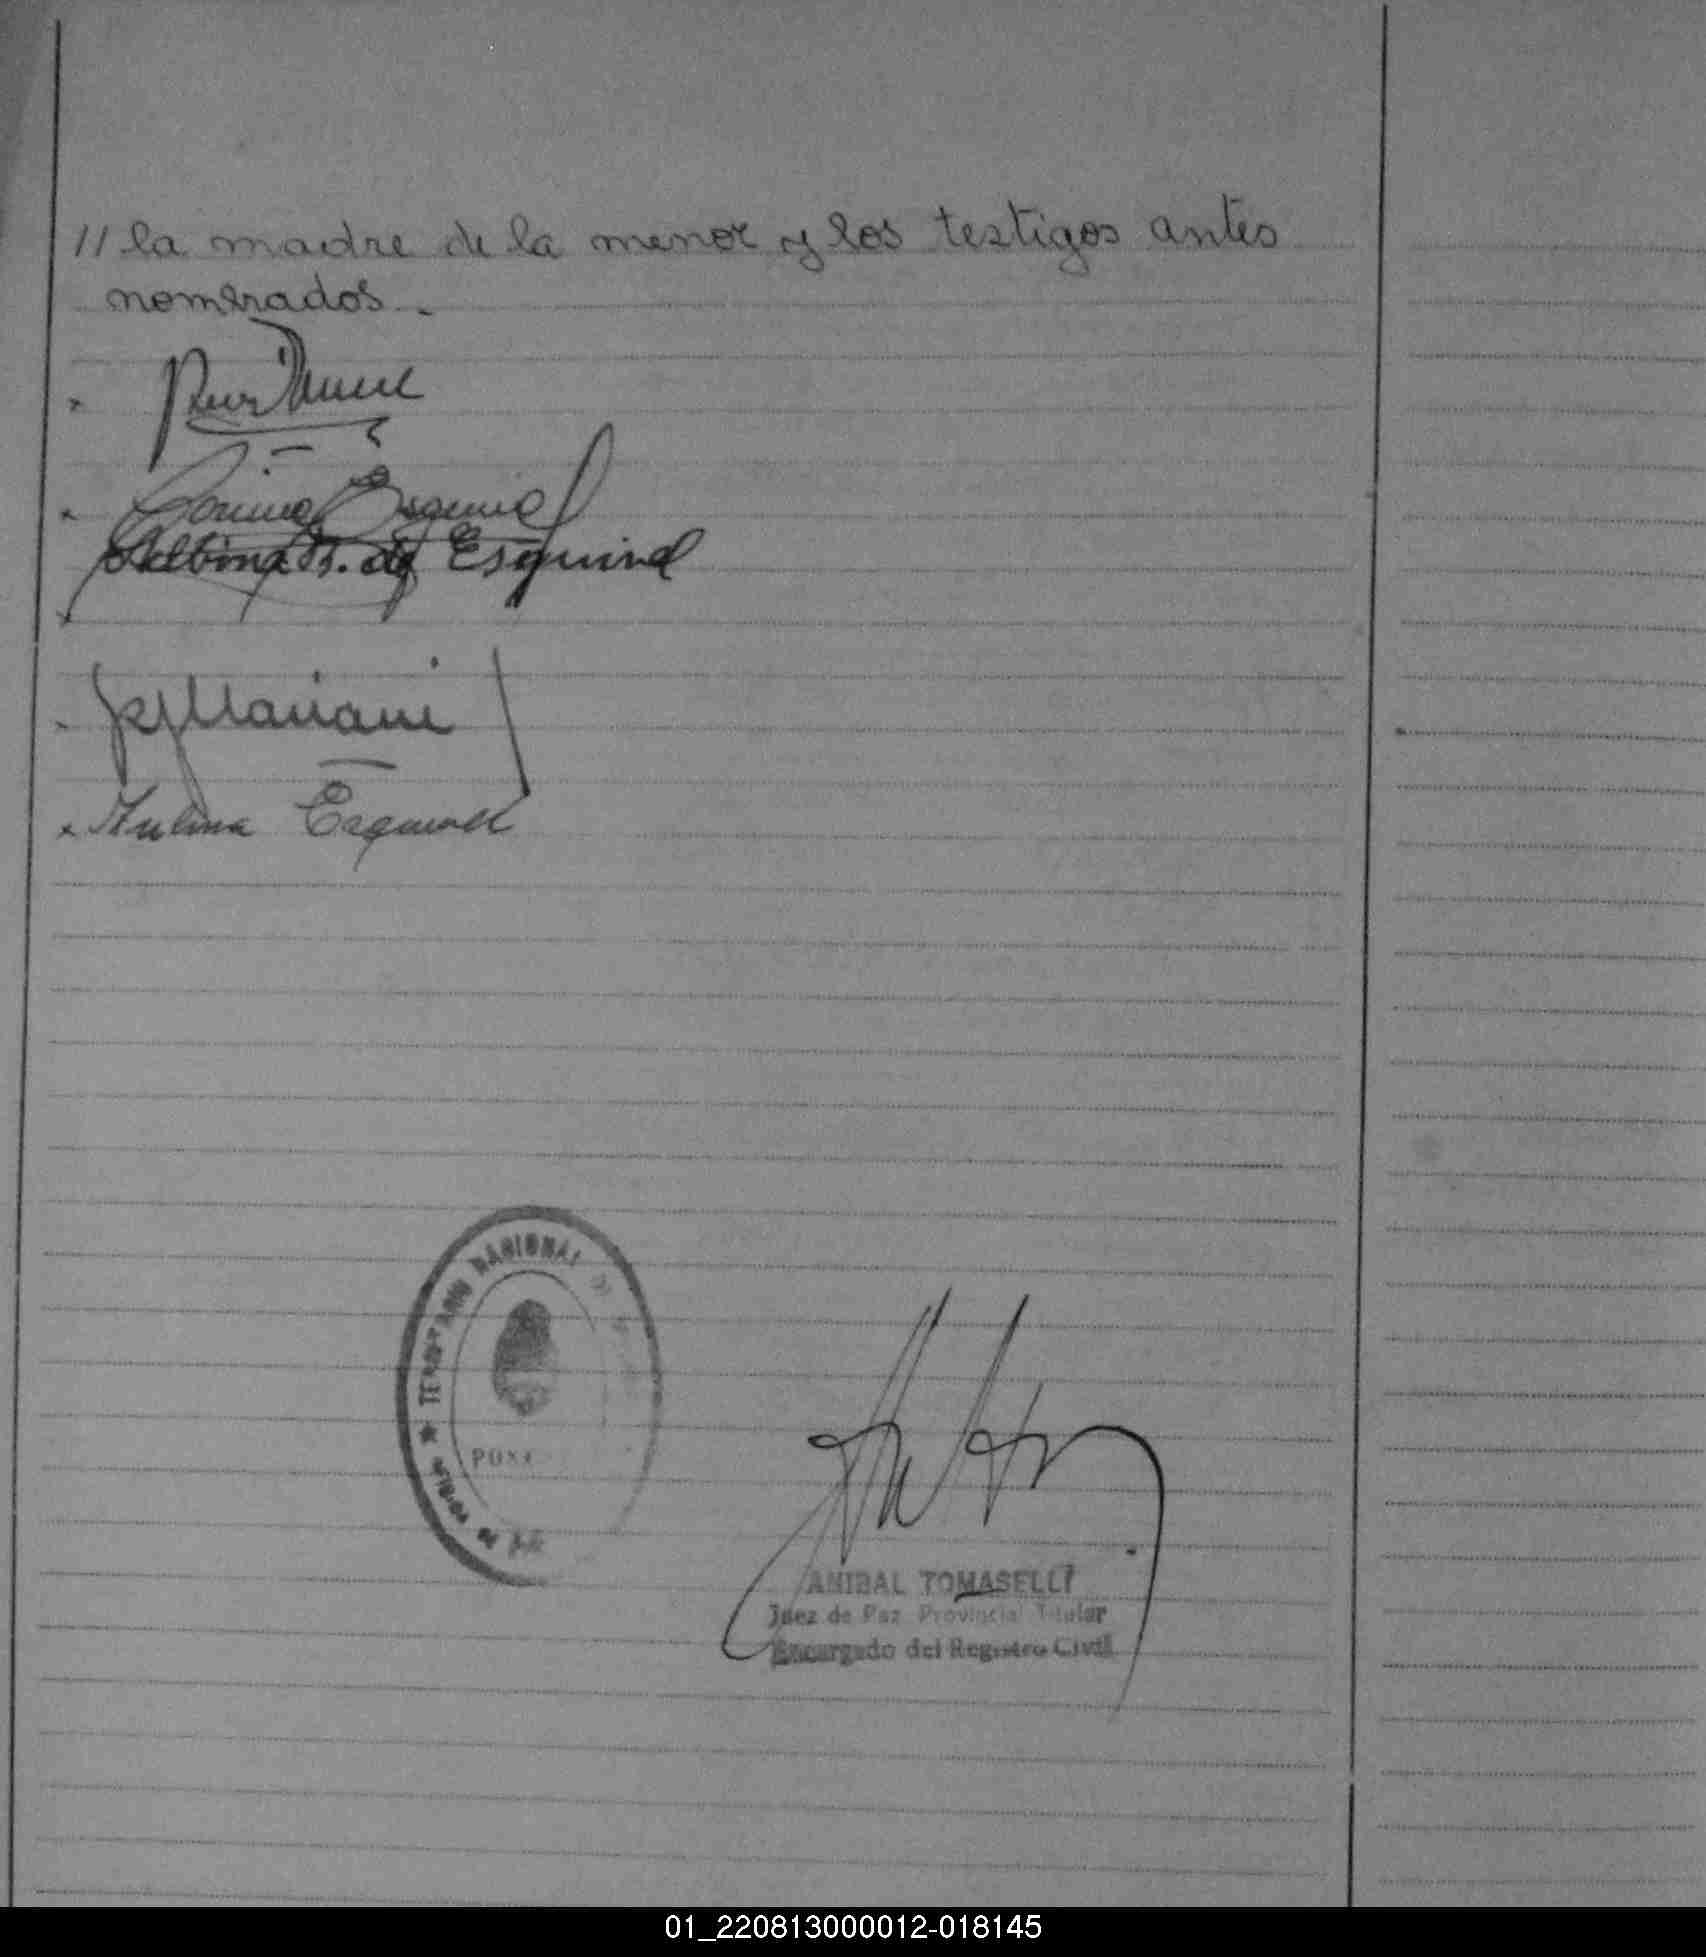 // la madre de la menor y los testigos antes
nombrados.
Corina Esquivel
Albina B. de Esquivel
Mariani
Julina Esquivel
★ TERRITORIO NACIONAL
ANIBAL TOMASELLI
Juez de Paz Provincial Titular
Encargado del Registro Civil
01_220813000012-018145